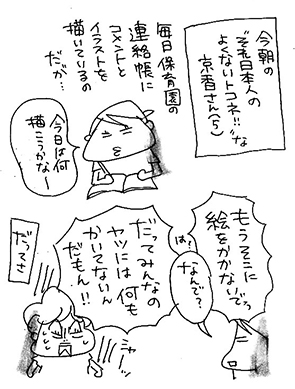 今朝の
"それ日本人の
よくないトコネ!!"な
京香さん(5)
毎日保育園の
連絡帳に
コメントと
イラストを
描いているの
だが…
今日は何
描こうかなー
もうそこに
絵をかかないでっ
は?
なんで?
だってみんなの
ヤツには何も
かいてないん
だもん!!
だってさ